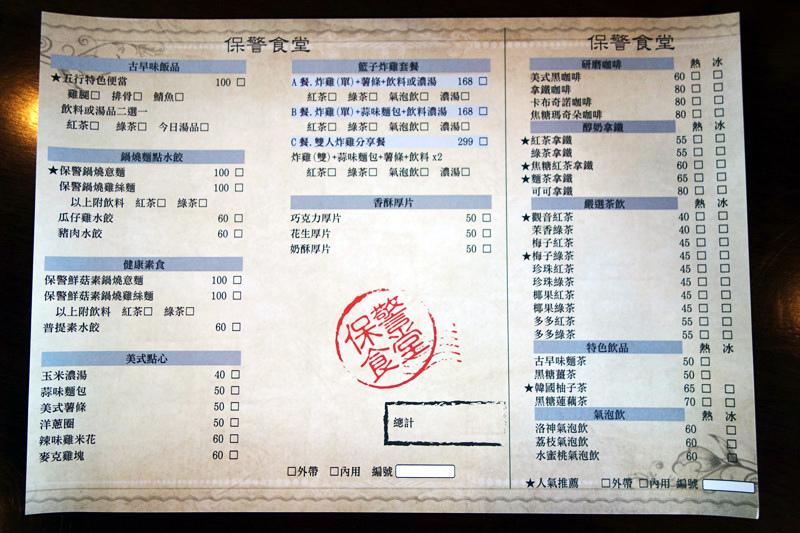 保警食堂
古早味飯品
★五行特色便當 100 □
雞腿□ 排骨□ 鯖魚□
飲料或湯品二選一
紅茶□ 綠茶□ 今日湯品□
鍋燒麵點水餃
★保警鍋燒意麵 100 □
保警鍋燒雞絲麵 100 □
以上附飲料 紅茶□ 綠茶□
瓜仔雞水餃 60 □
豬肉水餃 60 □
健康素食
保警鮮菇素鍋燒意麵 100 □
保警鮮菇素鍋燒雞絲麵 100 □
以上附飲料 紅茶□ 綠茶□
普提素水餃 60 □
美式點心
玉米濃湯 40 □
蒜味麵包 50 □
美式薯條 50 □
洋蔥圈 50 □
辣味雞米花 60 □
麥克雞塊 60 □
籃子炸雞套餐
A 餐.炸雞(單)+薯條+飲料或濃湯 168 □
紅茶□ 綠茶□ 氣泡飲□ 濃湯□
B 餐.炸雞(單)+蒜味麵包+飲料濃湯 168 □
紅茶□ 綠茶□ 氣泡飲□ 濃湯□
C 餐.雙人炸雞分享餐 299 □
炸雞(雙)+蒜味麵包+薯條+飲料 x2
紅茶□ 綠茶□ 氣泡飲□ 濃湯□
香酥厚片
巧克力厚片 50 □
花生厚片 50 □
奶酥厚片 50 □
保警食堂
總計
□外帶 □內用 編號
保警食堂
研磨咖啡 熱 冰
美式黑咖啡 60 □ □
拿鐵咖啡 80 □ □
卡布奇諾咖啡 80 □ □
焦糖瑪奇朵咖啡 80 □ □
醇奶拿鐵 熱 冰
★紅茶拿鐵 55 □ □
綠茶拿鐵 55 □ □
★焦糖紅茶拿鐵 60 □ □
★麵茶拿鐵 65 □ □
可可拿鐵 80 □ □
嚴選茶飲 熱 冰
★觀音紅茶 40 □ □
茉香綠茶 40 □ □
梅子紅茶 45 □ □
★梅子綠茶 45 □ □
珍珠紅茶 45 □ □
珍珠綠茶 45 □ □
椰果紅茶 45 □ □
椰果綠茶 45 □ □
多多紅茶 55 □ □
多多綠茶 55 □ □
特色飲品 熱 冰
古早味麵茶 50 □
黑糖薑茶 50 □
★韓國柚子茶 65 □ □
黑糖蓮藕茶 70 □ □
氣泡飲 熱 冰
洛神氣泡飲 60 □
荔枝氣泡飲 60 □
水蜜桃氣泡飲 60 □
★人氣推薦 □外帶 □內用 編號